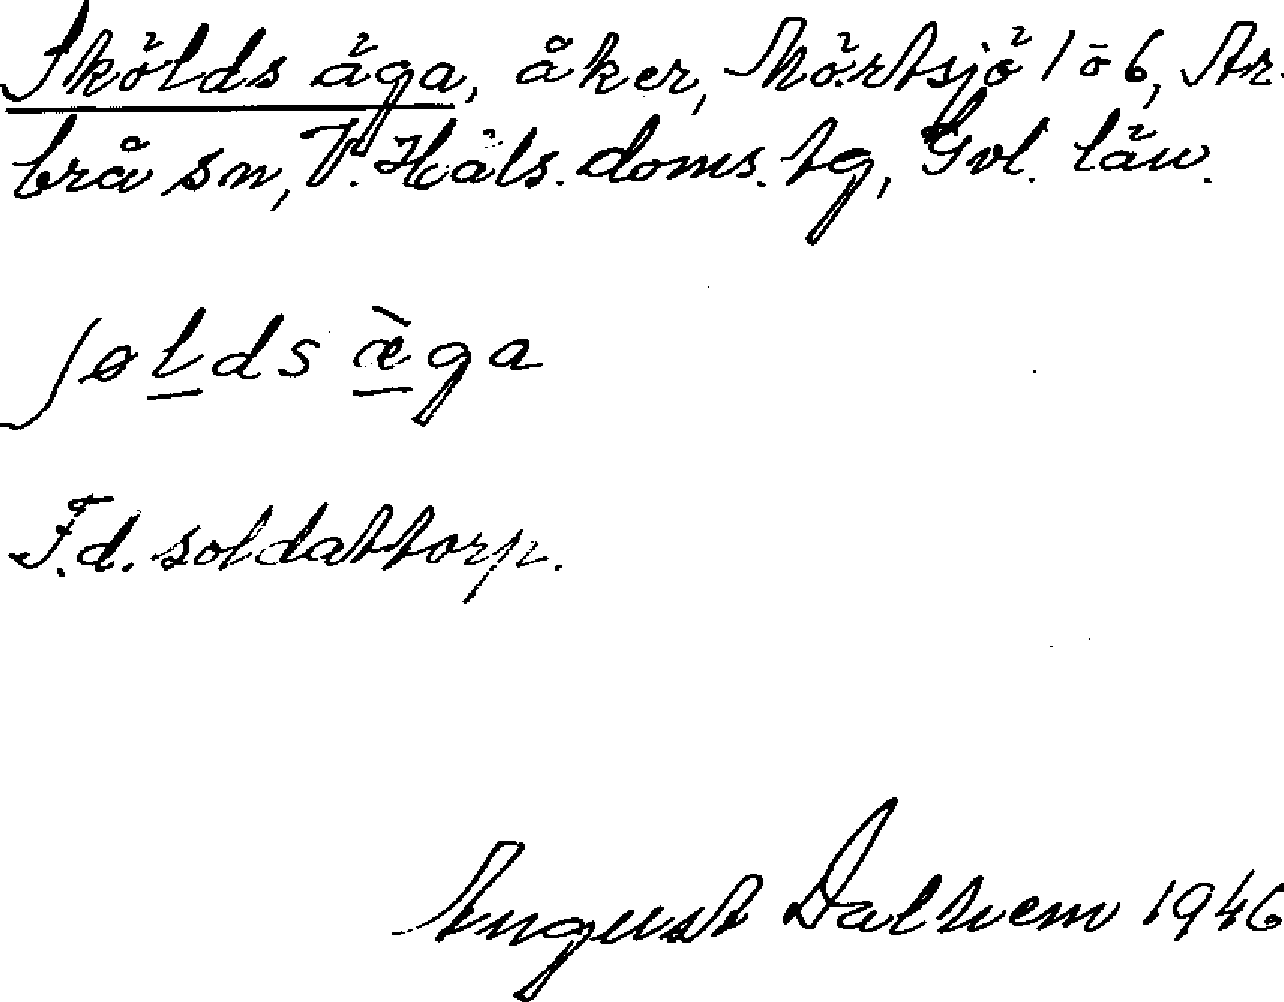 Skölds äga, åker, Mörtsjö 1 ō 6, Ar-
brå sn, V. Häls. doms. tg, Gvl. län.
ʃølds æ̀ga
F.d. soldattorp.
August Dalhem 1946